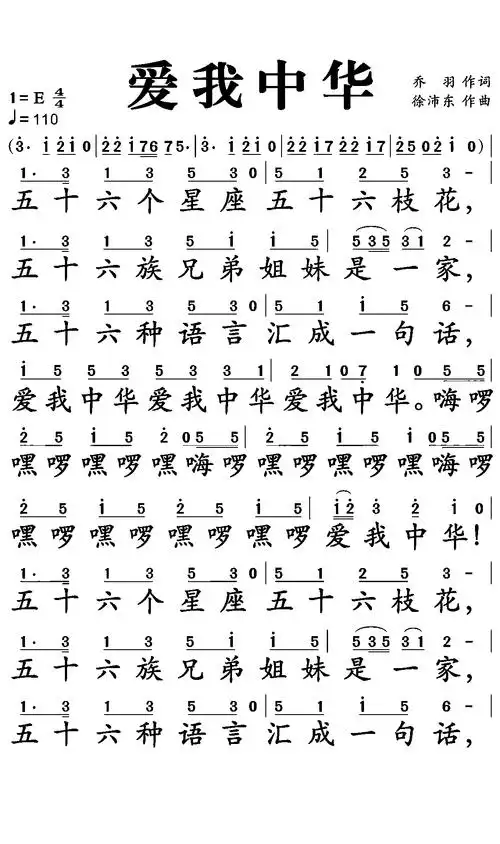 爱我中华
乔 羽 作词
1=E 4/4
徐沛东 作曲
♩=110
(3· i 2i0 | 22 i76 75· | 3· i 2i0 | 22 i7 22 i7 | 25 02 i0 )
1· 3 1 3 5 3 0 | 5 1 2 5 3 - |
五十六个星座五十六枝花,
1· 3 1 3 5 i i 5 | 535 31 2 - |
五十六族兄弟姐妹是一家,
1· 3 1 3 5 3 0 | 5 1 i 5 6 - |
五十六种语言汇成一句话,
i 5 5 3 5 3 3 1 | 2 10 7 10 0 5 5 |
爱我中华爱我中华爱我中华。嗨啰
2 5 i 5 2 05 5 | 2 5 i 5 2 05 5 |
嘿啰嘿啰嘿嗨啰嘿啰嘿啰嘿嗨啰
2 5 i 5 2 5 i 5 | i2 3 2 i 0 |
嘿啰嘿啰嘿啰嘿啰爱我中华!
1· 3 1 3 5 3 0 | 5 1 2 5 3 - |
五十六个星座五十六枝花,
1· 3 1 3 5 i i 5 | 535 31 2 - |
五十六族兄弟姐妹是一家,
1· 3 1 3 5 3 0 | 5 1 i 5 6 - |
五十六种语言汇成一句话,